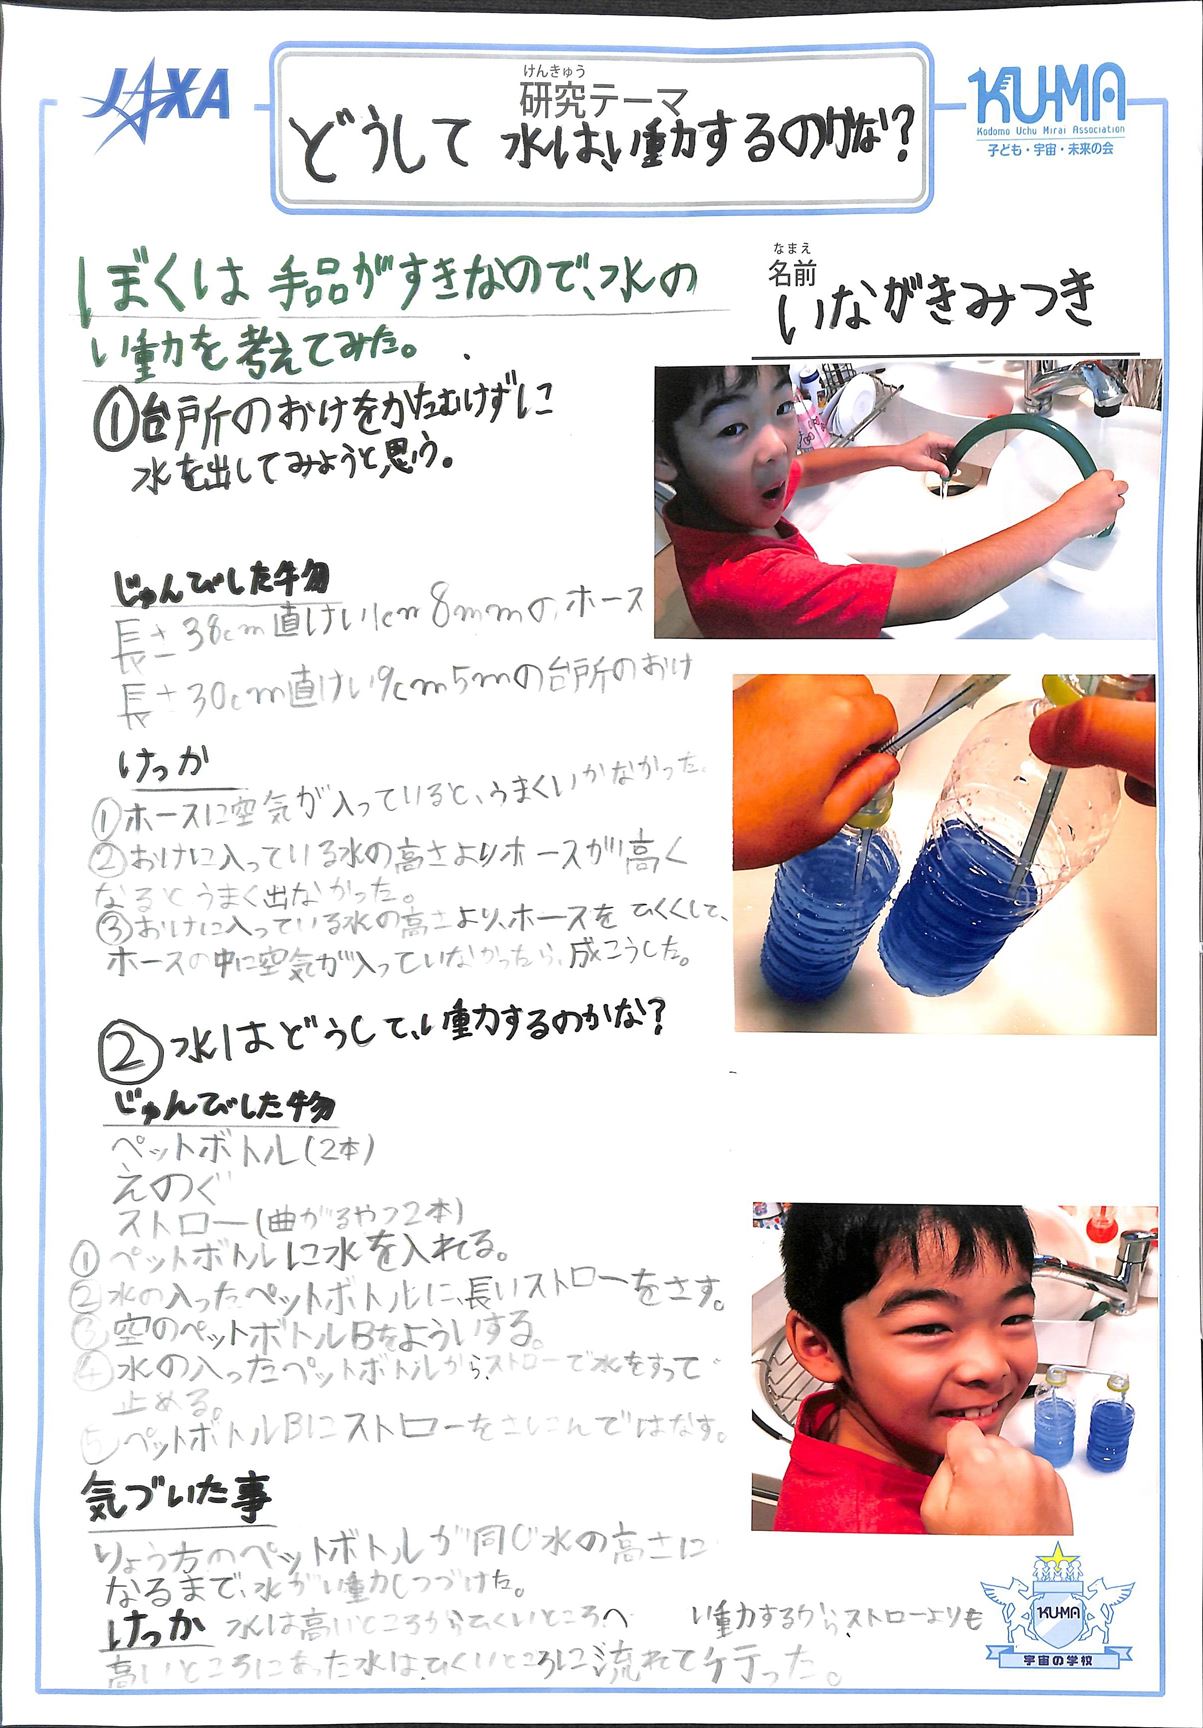 JAXA
けんきゅう
研究テーマ
どうして 水は、い動するのかな?
KU-MA
Kodomo Uchu Mirai Association
子ども・宇宙・未来の会
ぼくは 手品がすきなので、水の
い動を考えてみた。
なまえ
名前
いながきみつき
①台所のおけをかたむけずに
水を出してみようと思う。
じゅんびした物
長さ38cm直けい1cm8mmの、ホース
長さ30cm直けい9cm5mの台所のおけ
けっか
①ホースに空気が入っていると、うまくいかなかった。
②おけに入っている水の高さよりホースが高く
なるとうまく出なかった。
③おけに入っている水の高さより、ホースをひくくして、
ホースの中に空気が入っていなかったら、成こうした。
②水はどうして、い動するのかな?
じゅんびした物
ペットボトル(2本)
えのぐ
ストロー(曲がるやつ2本)
①ペットボトルに水を入れる。
②水の入ったペットボトルに、長いストローをさす。
③空のペットボトルBをよういする。
④水の入ったペットボトルから、ストローで水をすって
止める。
⑤ペットボトルBにストローをさしこんではなす。
気づいた事
りょう方のペットボトルが同じ水の高さに
なるまで、水がい動しつづけた。
けっか 水は高いところからひくいところへ い動するから、ストローよりも
高いところにあった水は、ひくいところに流れて行った。
KU-MA
宇宙の学校